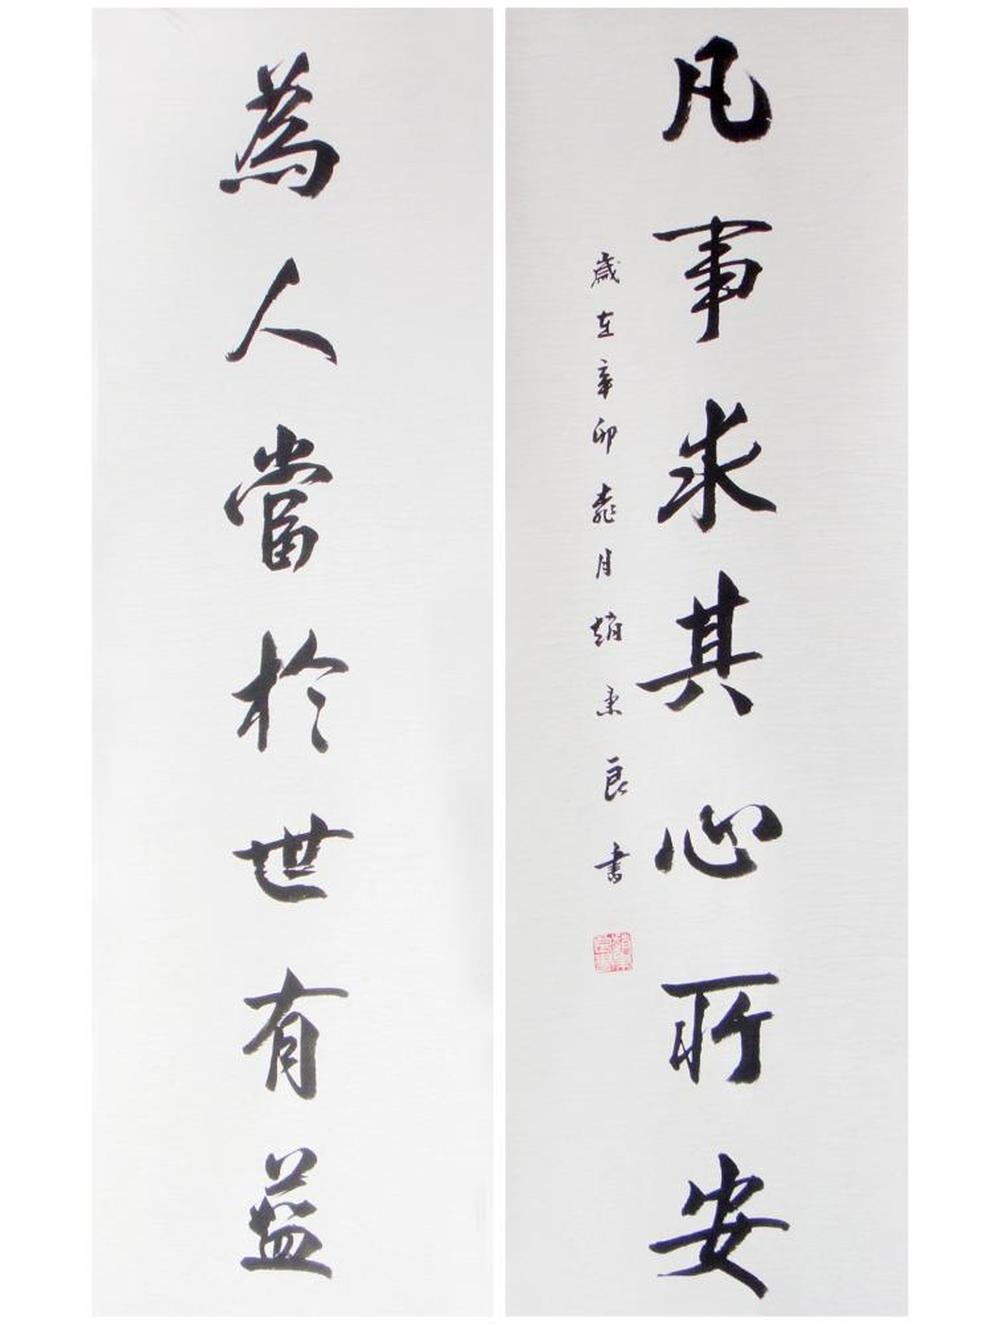 凡事求其心所安
歲在辛卯 月趙 良書
為人當於世有益